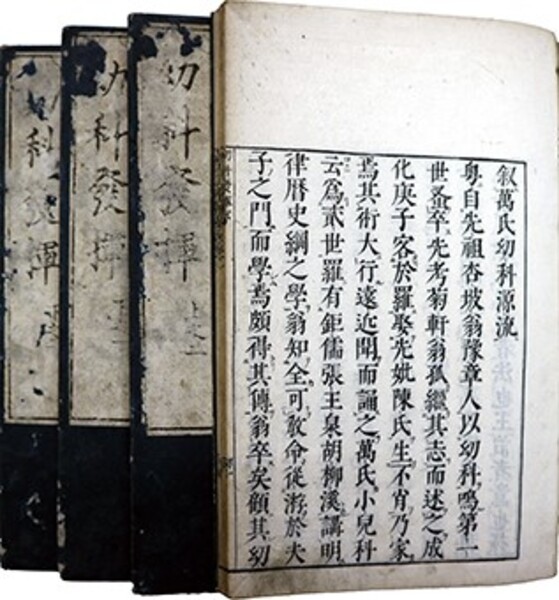 叙萬氏幼科源流
粤自先祖杏坡翁豫章人以幼科鳴第一
世蚤卒先考菊軒翁孤繼其志而述之成
化庚子客於羅娶先妣陳氏生不肖乃家
焉其術大行遠近聞而誦之萬氏小兒科
云爲貳世羅有鉅儒張王泉胡柳溪講明
律曆史綱之學翁知全可敎命從游於夫
子之門而學焉頗得其傳翁卒矣顧其幼
幼科發揮
幼科發揮
科發揮